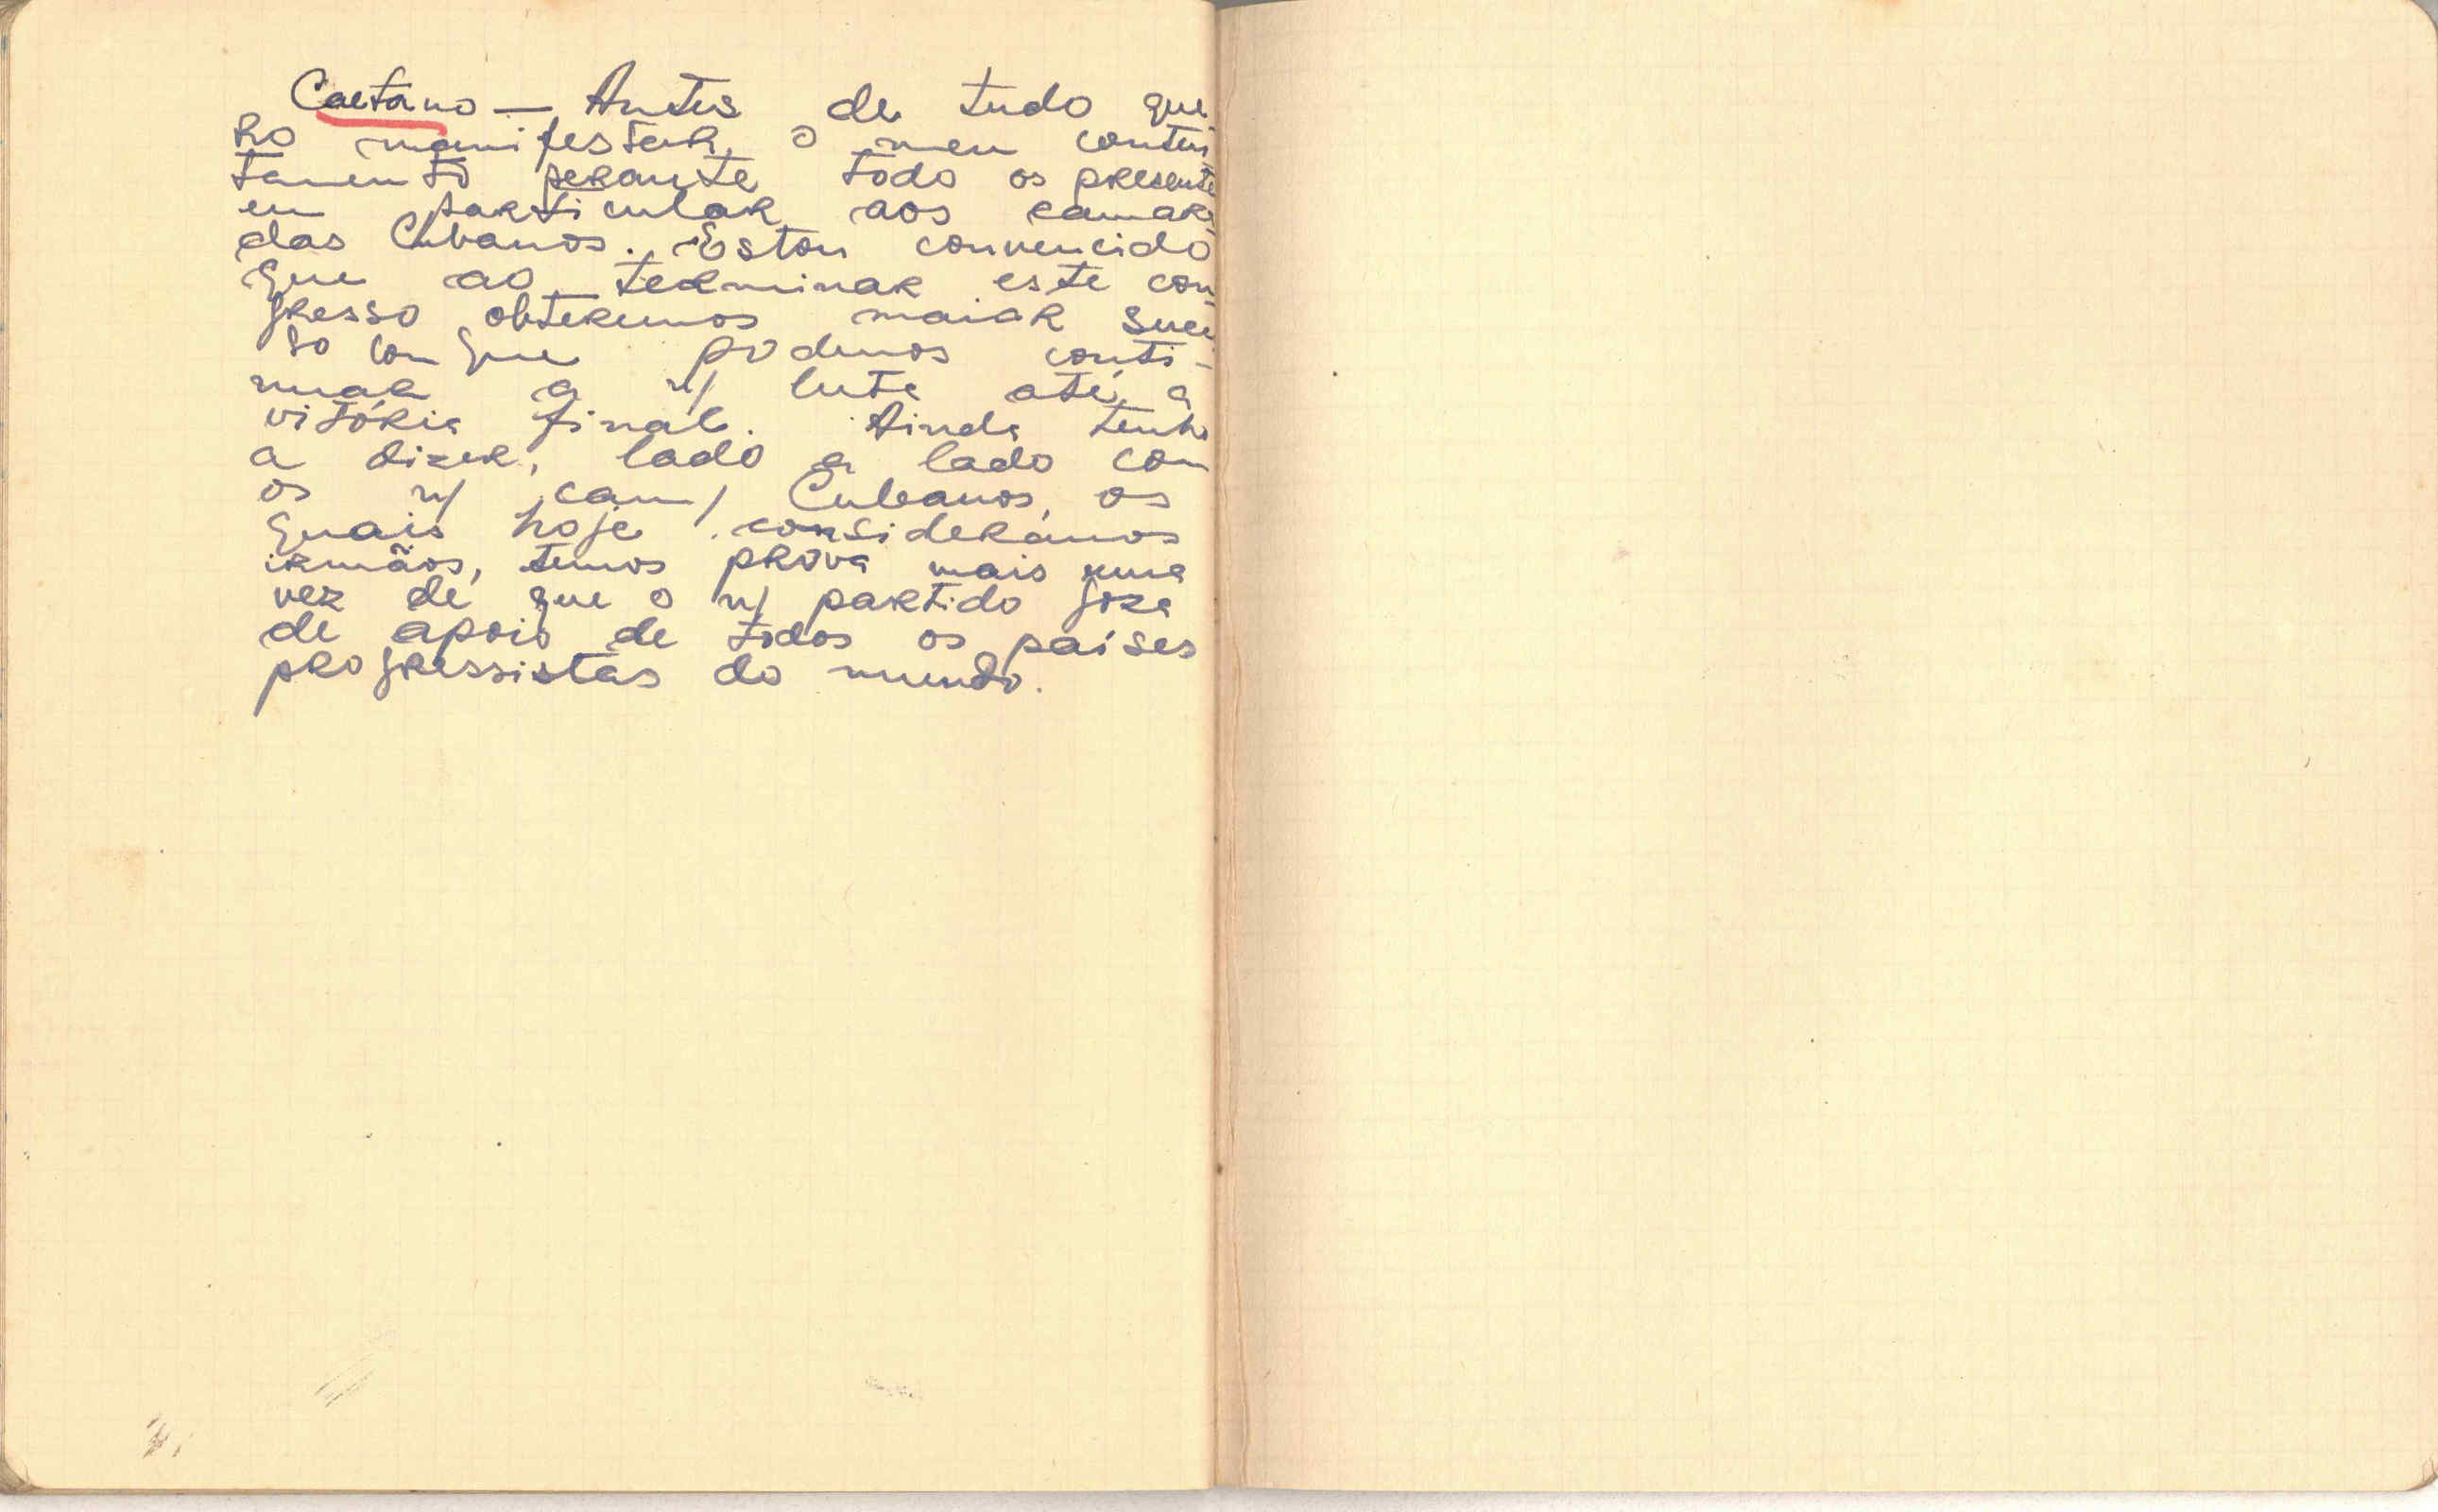 Caetano — Antes de tudo que-
ro manifestar o meu conten-
tamento perante todo os presente
em particular aos camara-
das Cubanos. Estou convencido
que ao terminar este con-
gresso obteremos maior suces-
so com que podemos conti-
nuar a n/ luta até a
vitória final. Ainda tenho
a dizer, lado a lado com
os n/ cam/ Cubanos, os
quais hoje considerámos
irmãos, temos prova mais uma
vez de que o n/ partido goza
de apoio de todos os países
progressistas do mundo.